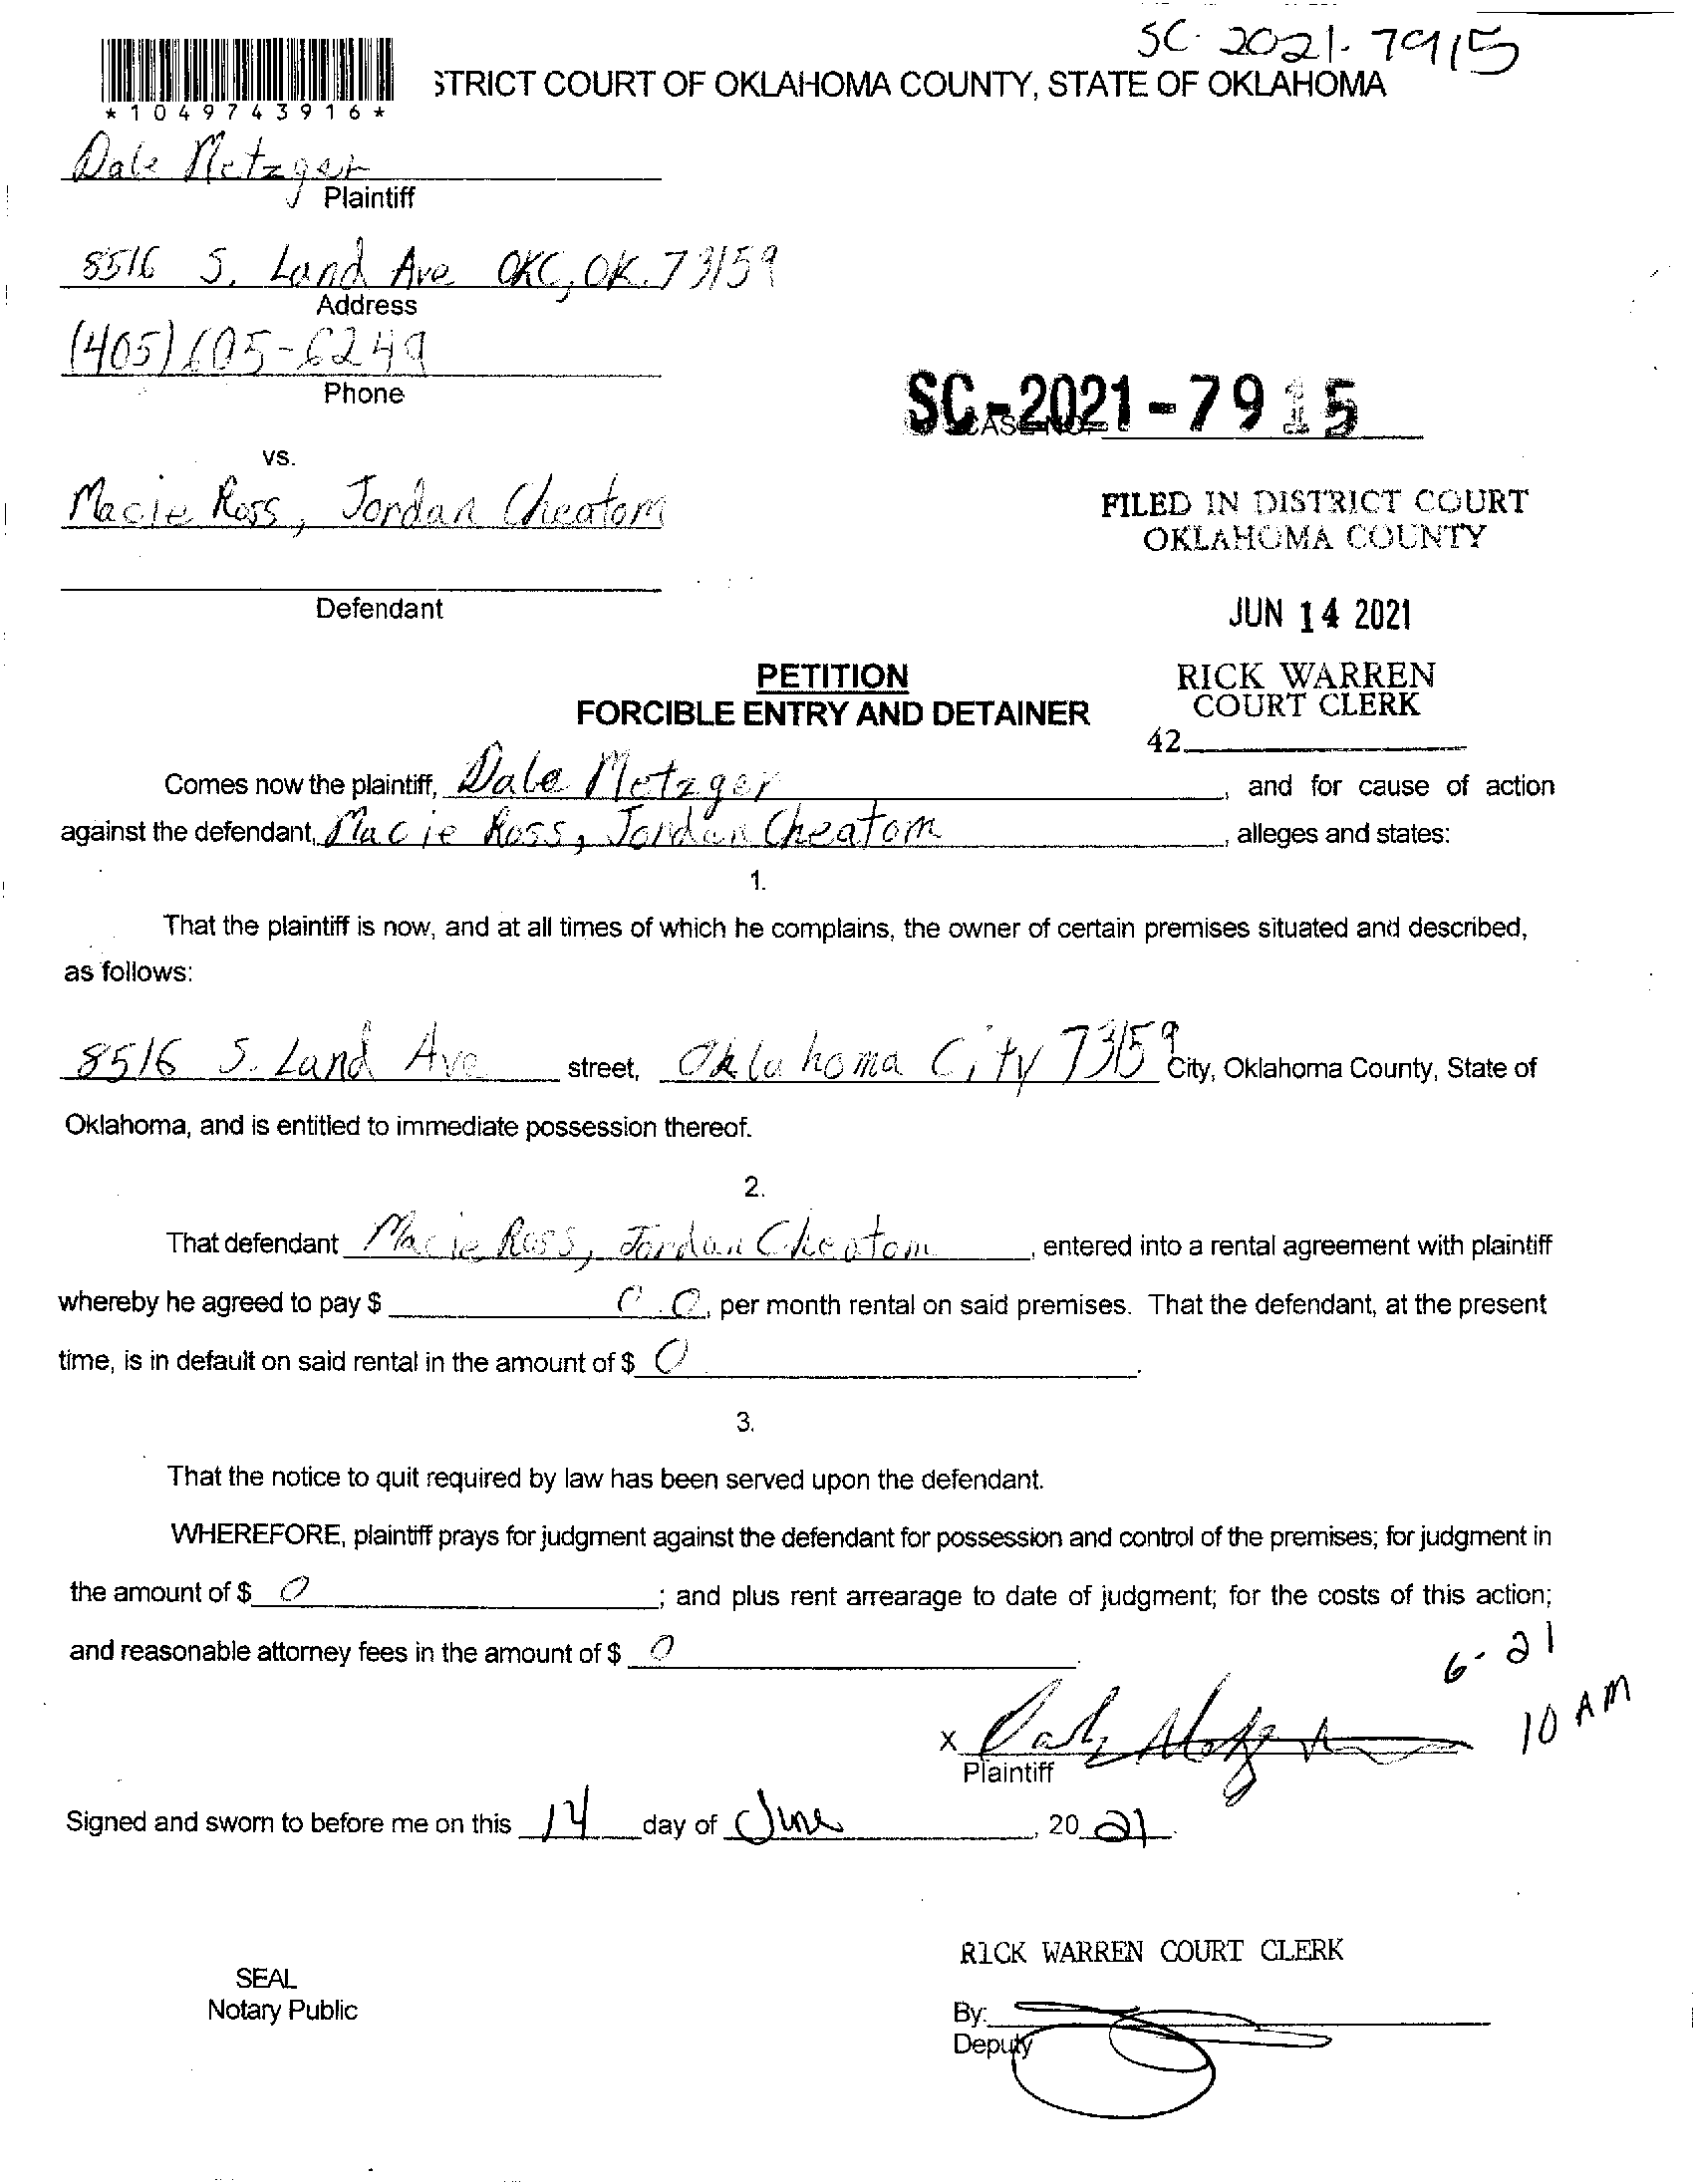 SC-2021-7915
STRICT COURT OF OKLAHOMA COUNTY, STATE OF OKLAHOMA
*1049743916*
Dale Metzger
Plaintiff
8516 S. Land Ave OKC, OK. 73159
Address
(405) 605-6249
Phone
SC-2021-7915
CASE NO.
vs.
Macie Ross, Jordan Cheatom
FILED IN DISTRICT COURT
OKLAHOMA COUNTY
Defendant
JUN 14 2021
PETITION
FORCIBLE ENTRY AND DETAINER
RICK WARREN
COURT CLERK
42
Comes now the plaintiff, Dale Metzger, and for cause of action
against the defendant, Macie Ross, Jordan Cheatom, alleges and states:
1.
That the plaintiff is now, and at all times of which he complains, the owner of certain premises situated and described,
as follows:
8516 S. Land Ave street, Oklahoma City 73159 City, Oklahoma County, State of
Oklahoma, and is entitled to immediate possession thereof.
2.
That defendant Macie Ross, Jordan Cheatom, entered into a rental agreement with plaintiff
whereby he agreed to pay $ 0.0, per month rental on said premises. That the defendant, at the present
time, is in default on said rental in the amount of $ 0.
3.
That the notice to quit required by law has been served upon the defendant.
WHEREFORE, plaintiff prays for judgment against the defendant for possession and control of the premises; for judgment in
the amount of $ 0; and plus rent arrearage to date of judgment; for the costs of this action;
and reasonable attorney fees in the amount of $ 0.
6-21
10 AM
x Dale Metzger
Plaintiff
Signed and sworn to before me on this 14 day of June, 2021.
RICK WARREN COURT CLERK
SEAL
Notary Public
By:
Deputy